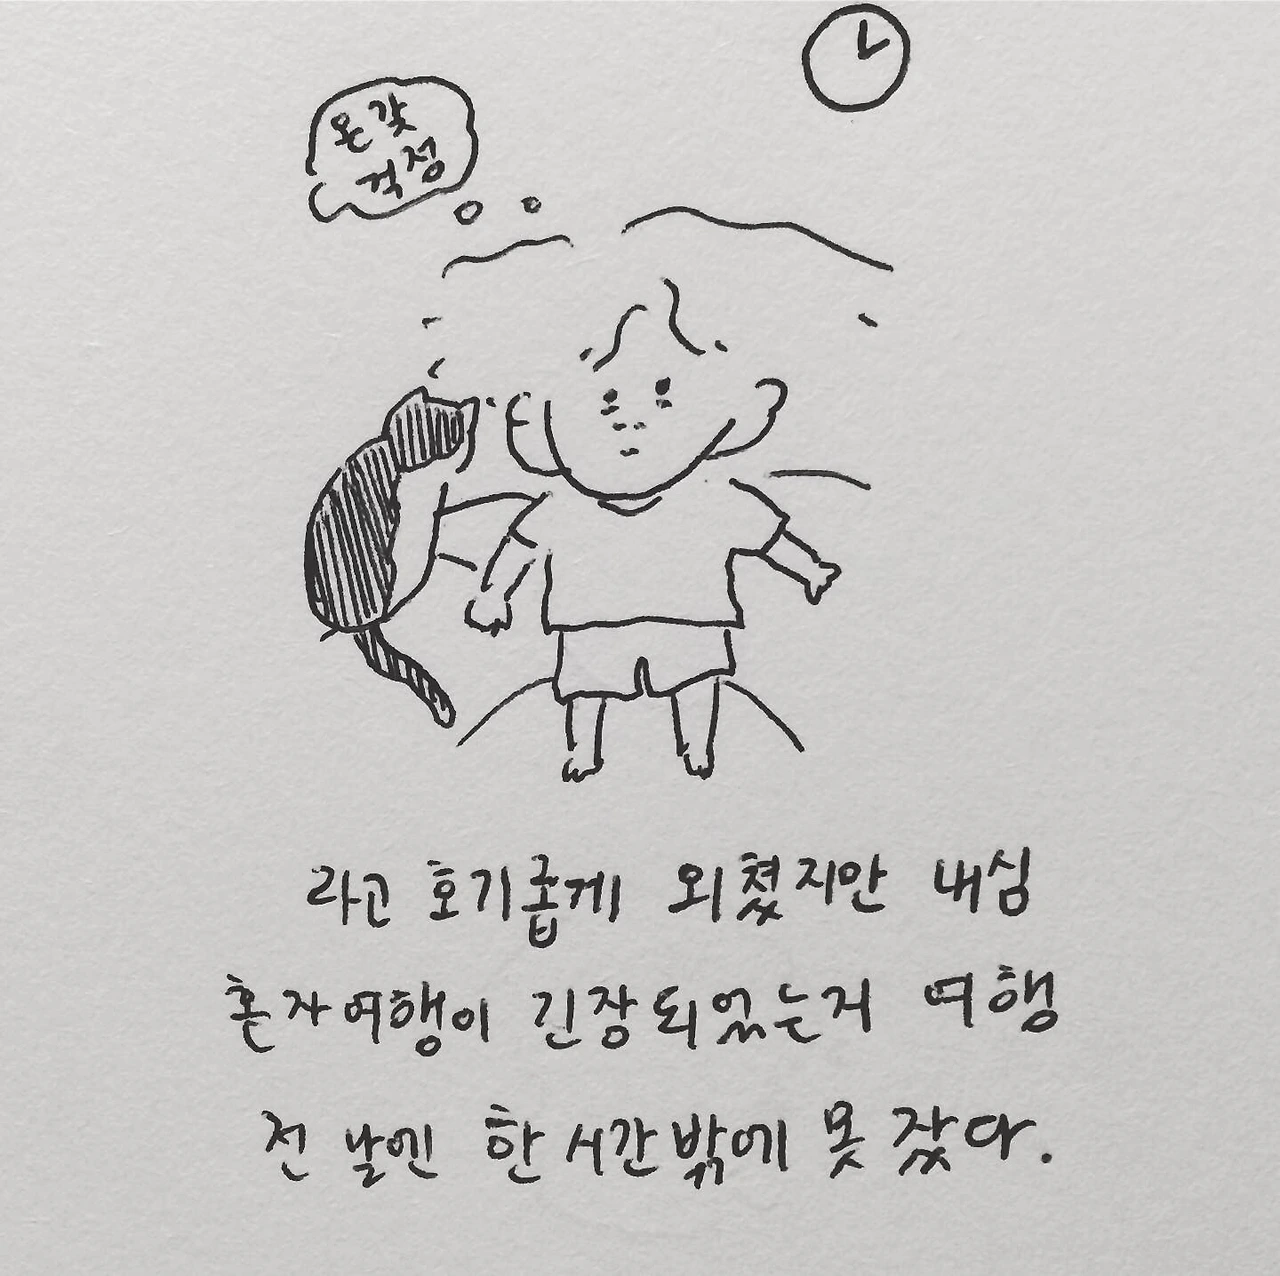 온갖
걱정
라고 호기롭게 외쳤지만 내심
혼자여행이 긴장되었는지 여행
전 날엔 한시간밖에 못 잤다.